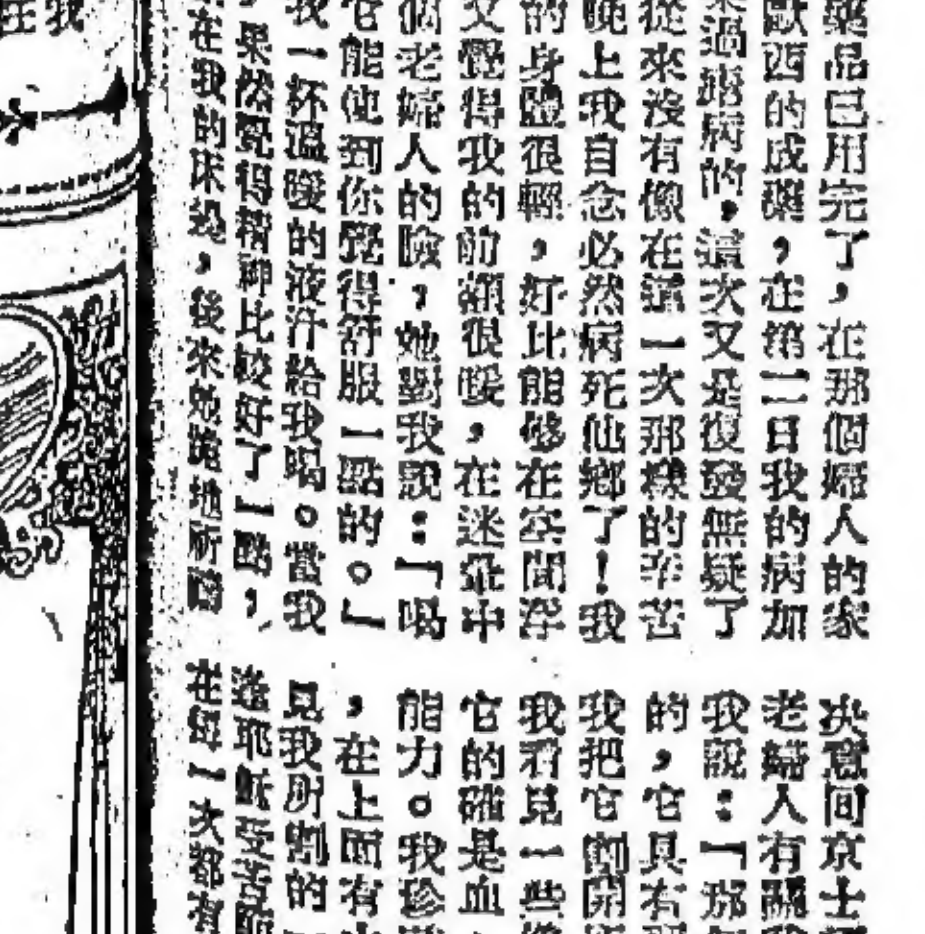 藥品已用完了，在那個婦人的家
歐西的成藥，在第二日我的病加
過 病的，這次又是復發無疑了
從來沒有像在這一次那樣的辛苦
晚上我自念必然病死仙鄉了！我
的身體很輕，好比能够在空間浮
又覺得我的前額很暖，在迷暈中
個老婦人的臉，她對我說：「喝
它能使到你覺得舒服一點的。」
我一杯溫暖的液汁給我喝。當我
，果然覺得精神比較好了一點，
在我的床邊，後來她跪地祈禱
決意間京士
老婦人有關我
我說：「那
的，它具有
我把它割開
我看見一些
它的確是血
能力。我珍
，在上面有
見我所割的
耶穌受苦
在 一次都有
在我